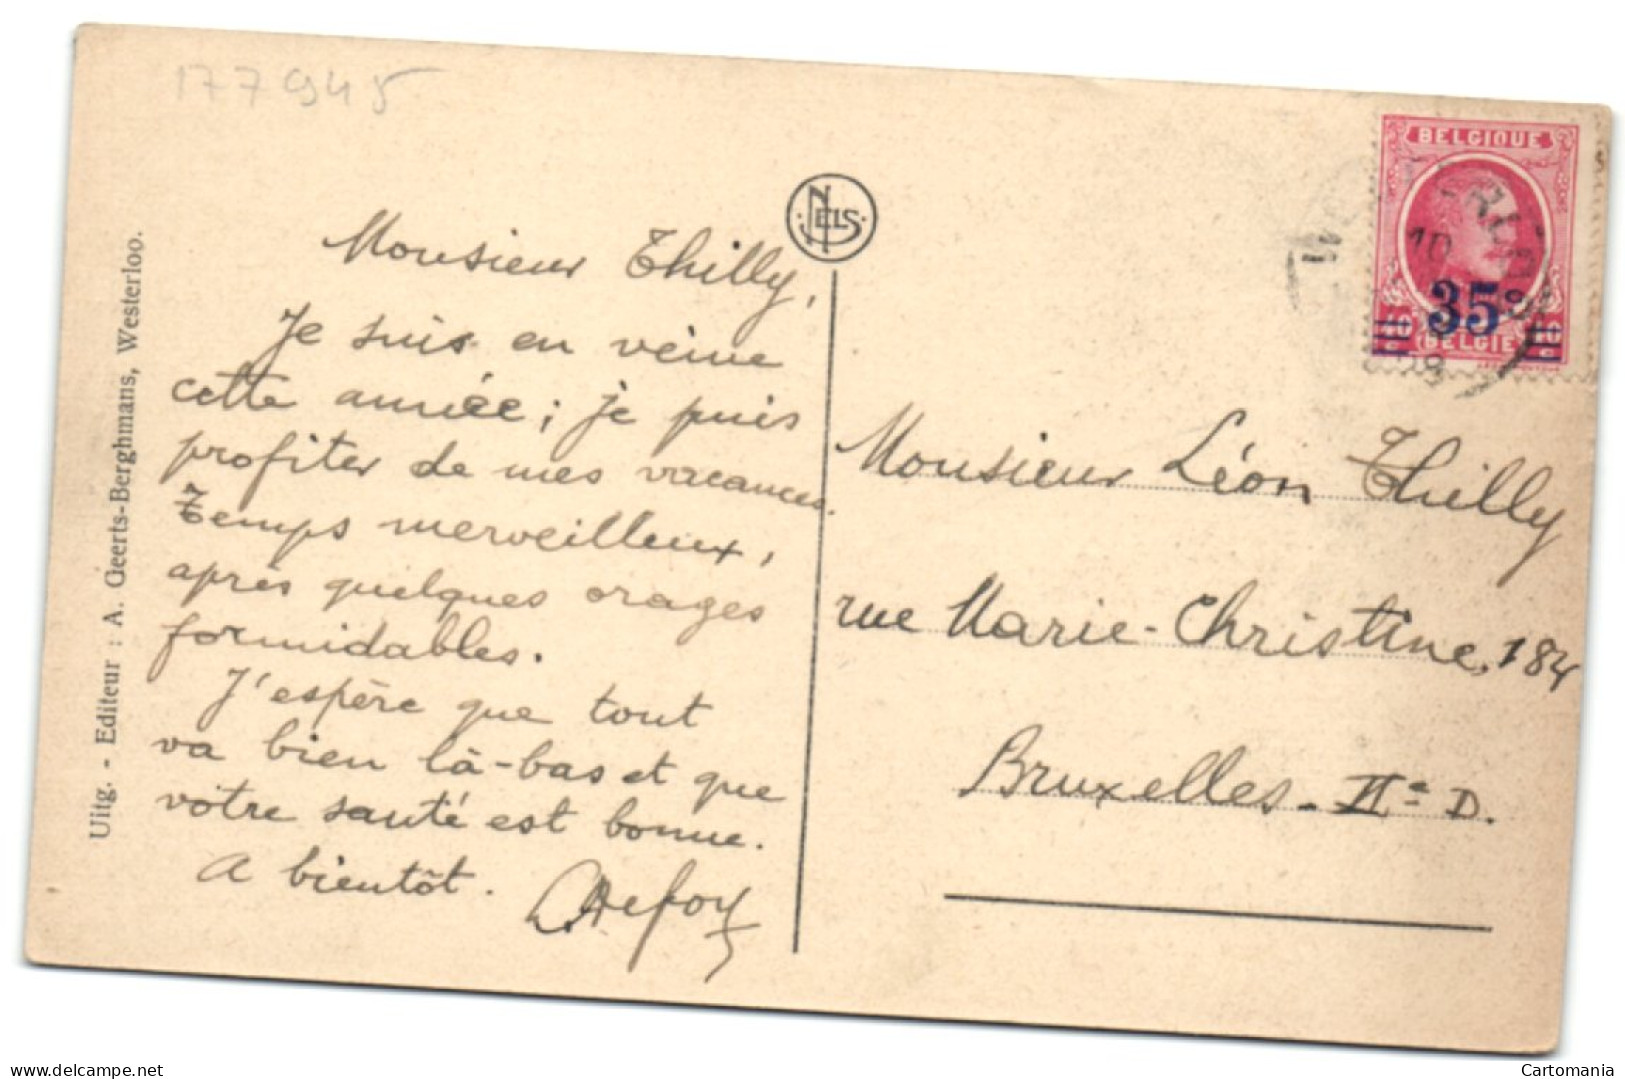 177945
NELS
Uitg. - Editeur : A. Geerts-Berghmans, Westerloo.
Monsieur Thilly,
Je suis en veine
cette année ; je puis
profiter de mes vacances.
Temps merveilleux,
après quelques orages
formidables.
J'espère que tout
va bien là-bas et que
votre santé est bonne.
A bientôt.
BELGIQUE
35
BELGIË
Monsieur Léon Thilly
rue Marie-Christine, 184
Bruxelles - II e D.
delcampe.net
Cartomania